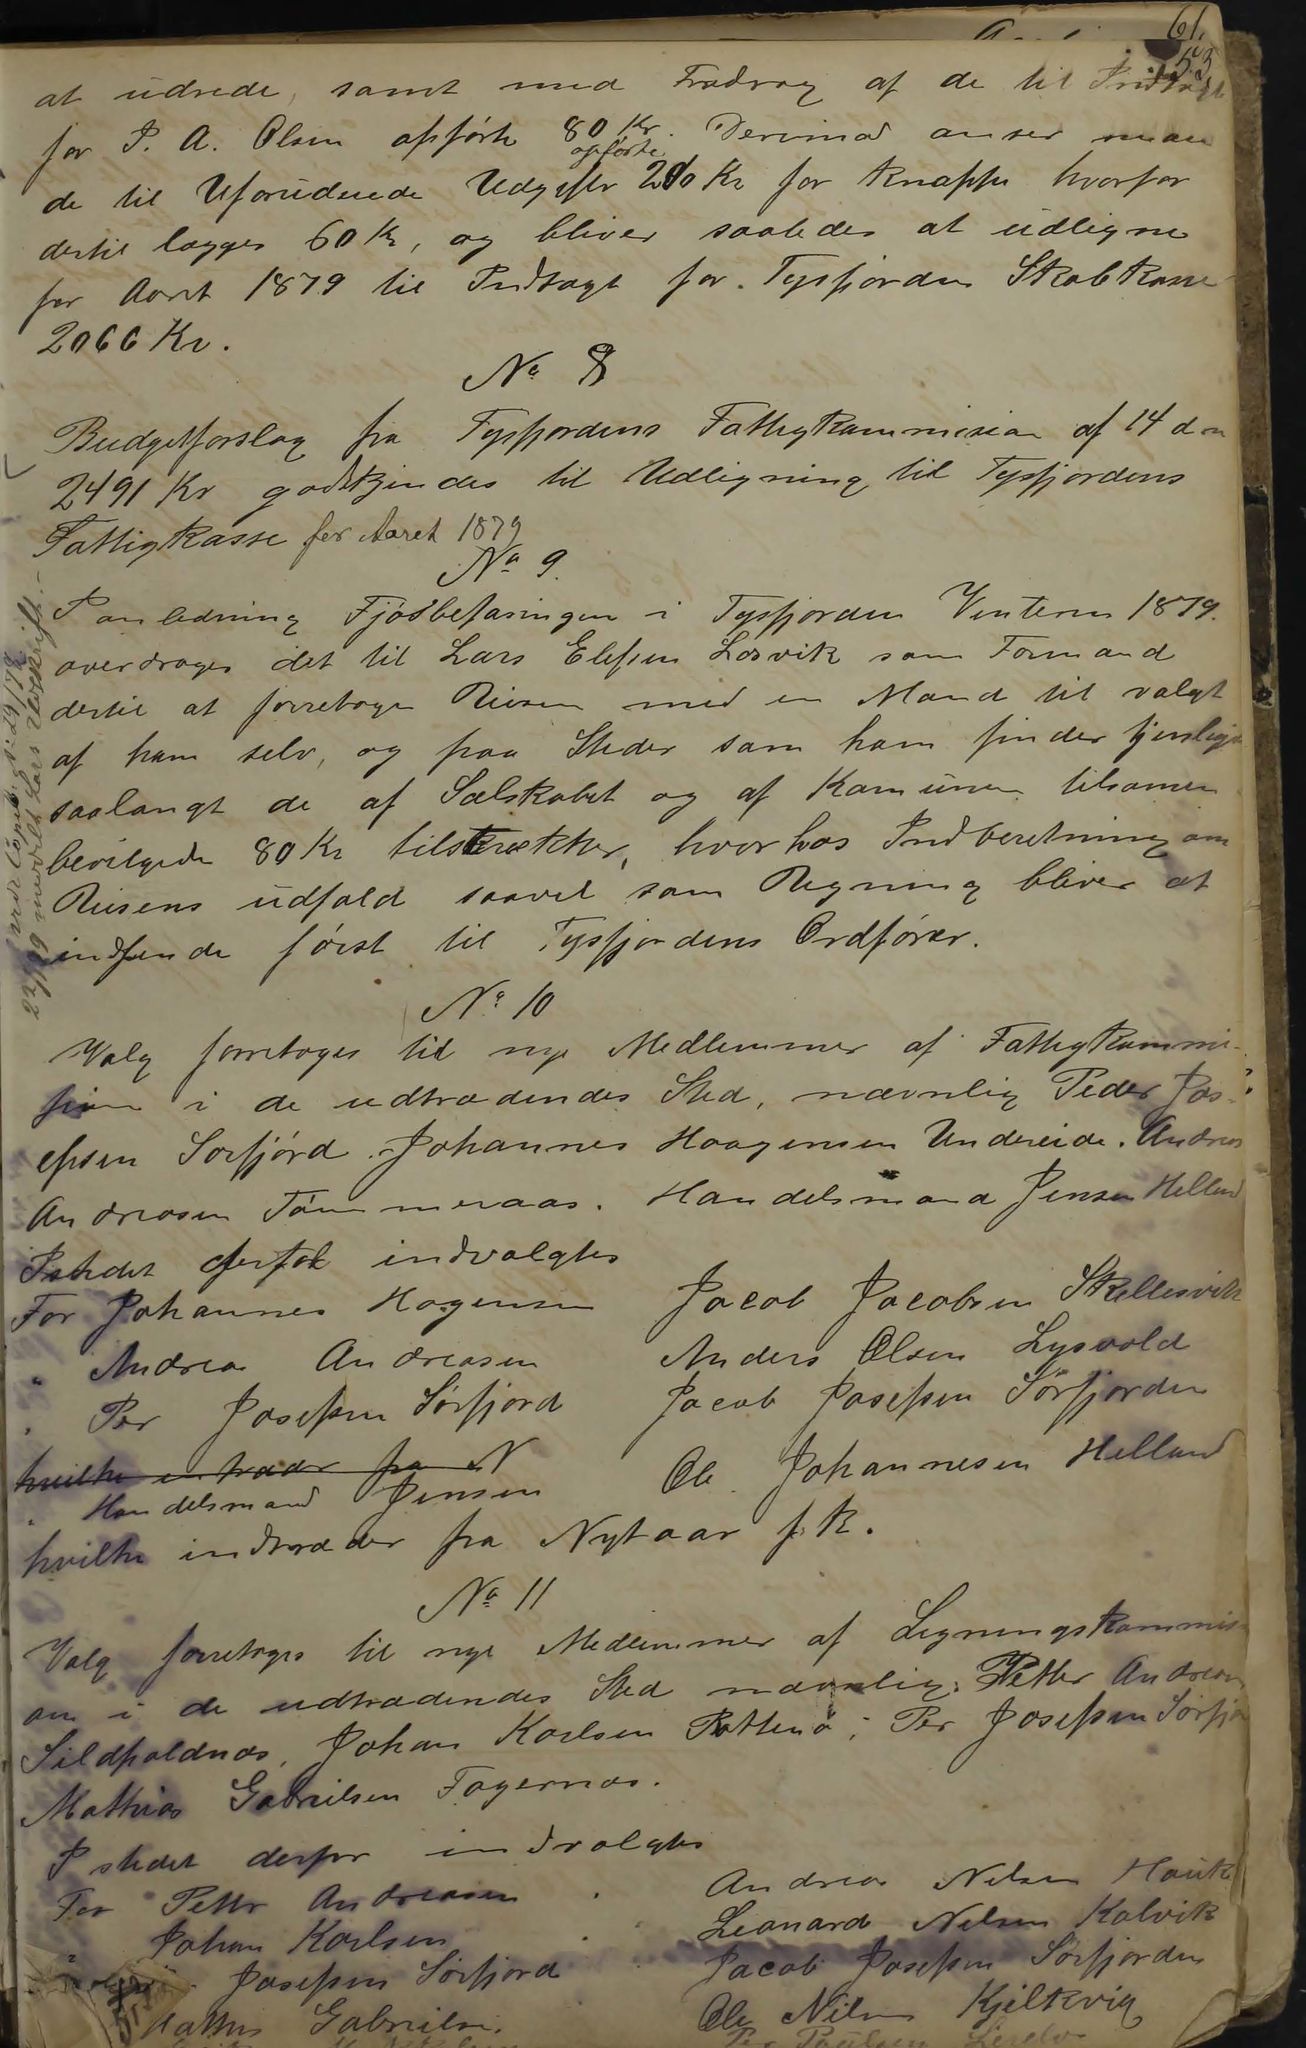 61.
53
at udrede, samt med Fradrag af de til Indtægt
for P. A. Olsen opførte 80 Kr. Derimod anser man
de til Uforudseede Udgifter opførte 200 Kr for knappe hvorfor
dertil lægges 60 Kr, og bliver saaledes at udligne
for Aaret 1879 til Indtægt for Tysfjordens Skolekasse
2066 Kr.
No 8
Budgetforslag fra Tysfjordens Fattigkommission af 14 d m
2491 Kr godkjendes til Udligning til Tysfjordens
Fattigkasse for Aaret 1879
No 9.
I anledning Fjøsbefaringen i Tysfjorden Vinteren 1879.
overdrages det til Lars Elefsen Losvik som Formand
dertil at foretage Reisen med en Mand til valgt
af ham selv, og paa Steder som ham finder tjenligst
saalangt de af Selskabet og af Kommunen tilsamen
bevilgede 80 Kr tilstrækker, hvorhos Indberetning om
Reisens udfald saavel som Regning bliver at
indsende først til Tysfjordens Ordfører.
No 10
Valg forretages til nye Medlemmer af Fattigkommi-
sion i de udtrædendes Sted, nævnlig Peder Jos-
efsen Sørfjord. Johannes Haagensen Undereide. Andreas
Andreasen Tømmeraas. Handelsmand Jensen Helland
Istedet derfor indvalgtes
For Johannes Hagensen Jacob Jacobsen Skellesvik
" Andreas Andreasen Anders Olsen Lysvold
" Per Josefsen Sørfjord Jacob Josefsen Sørfjorden
hvilke intræder fra N
" Handelsmand Jensen Ole Johannesen Helland
hvilke indtræder fra Nytaar f. k.
No 11
Valg forretages til nye Medlemmer af Ligningskommis
on i de udtrædendes Sted nævnlig: Petter Andreasen
Sildpoldnæs, Johan Karlsen Rottenø, Per Josefsen Sørfjor
Mathias Gabrielsen Fagernæs.
I stedet derfor indvalgtes
For Petter Andreasen Andreas Nilsen Hauk
" Johan Karlsen Leonard Nilsen Kalvik
Josefsen Sørfjord Jacob Josefsen Sørfjorden
Mathias Gabrielsen Ole Nilsen Kjelkvig
Per Paulsen